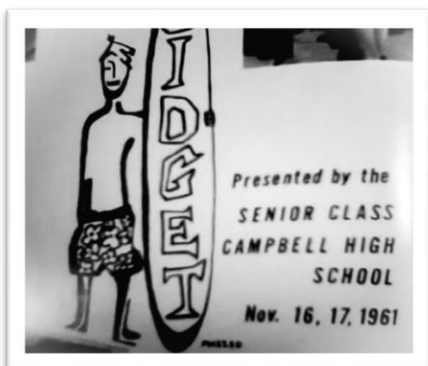 IDGET
Presented by the
SENIOR CLASS
CAMPBELL HIGH
SCHOOL
Nov. 16, 17, 1961